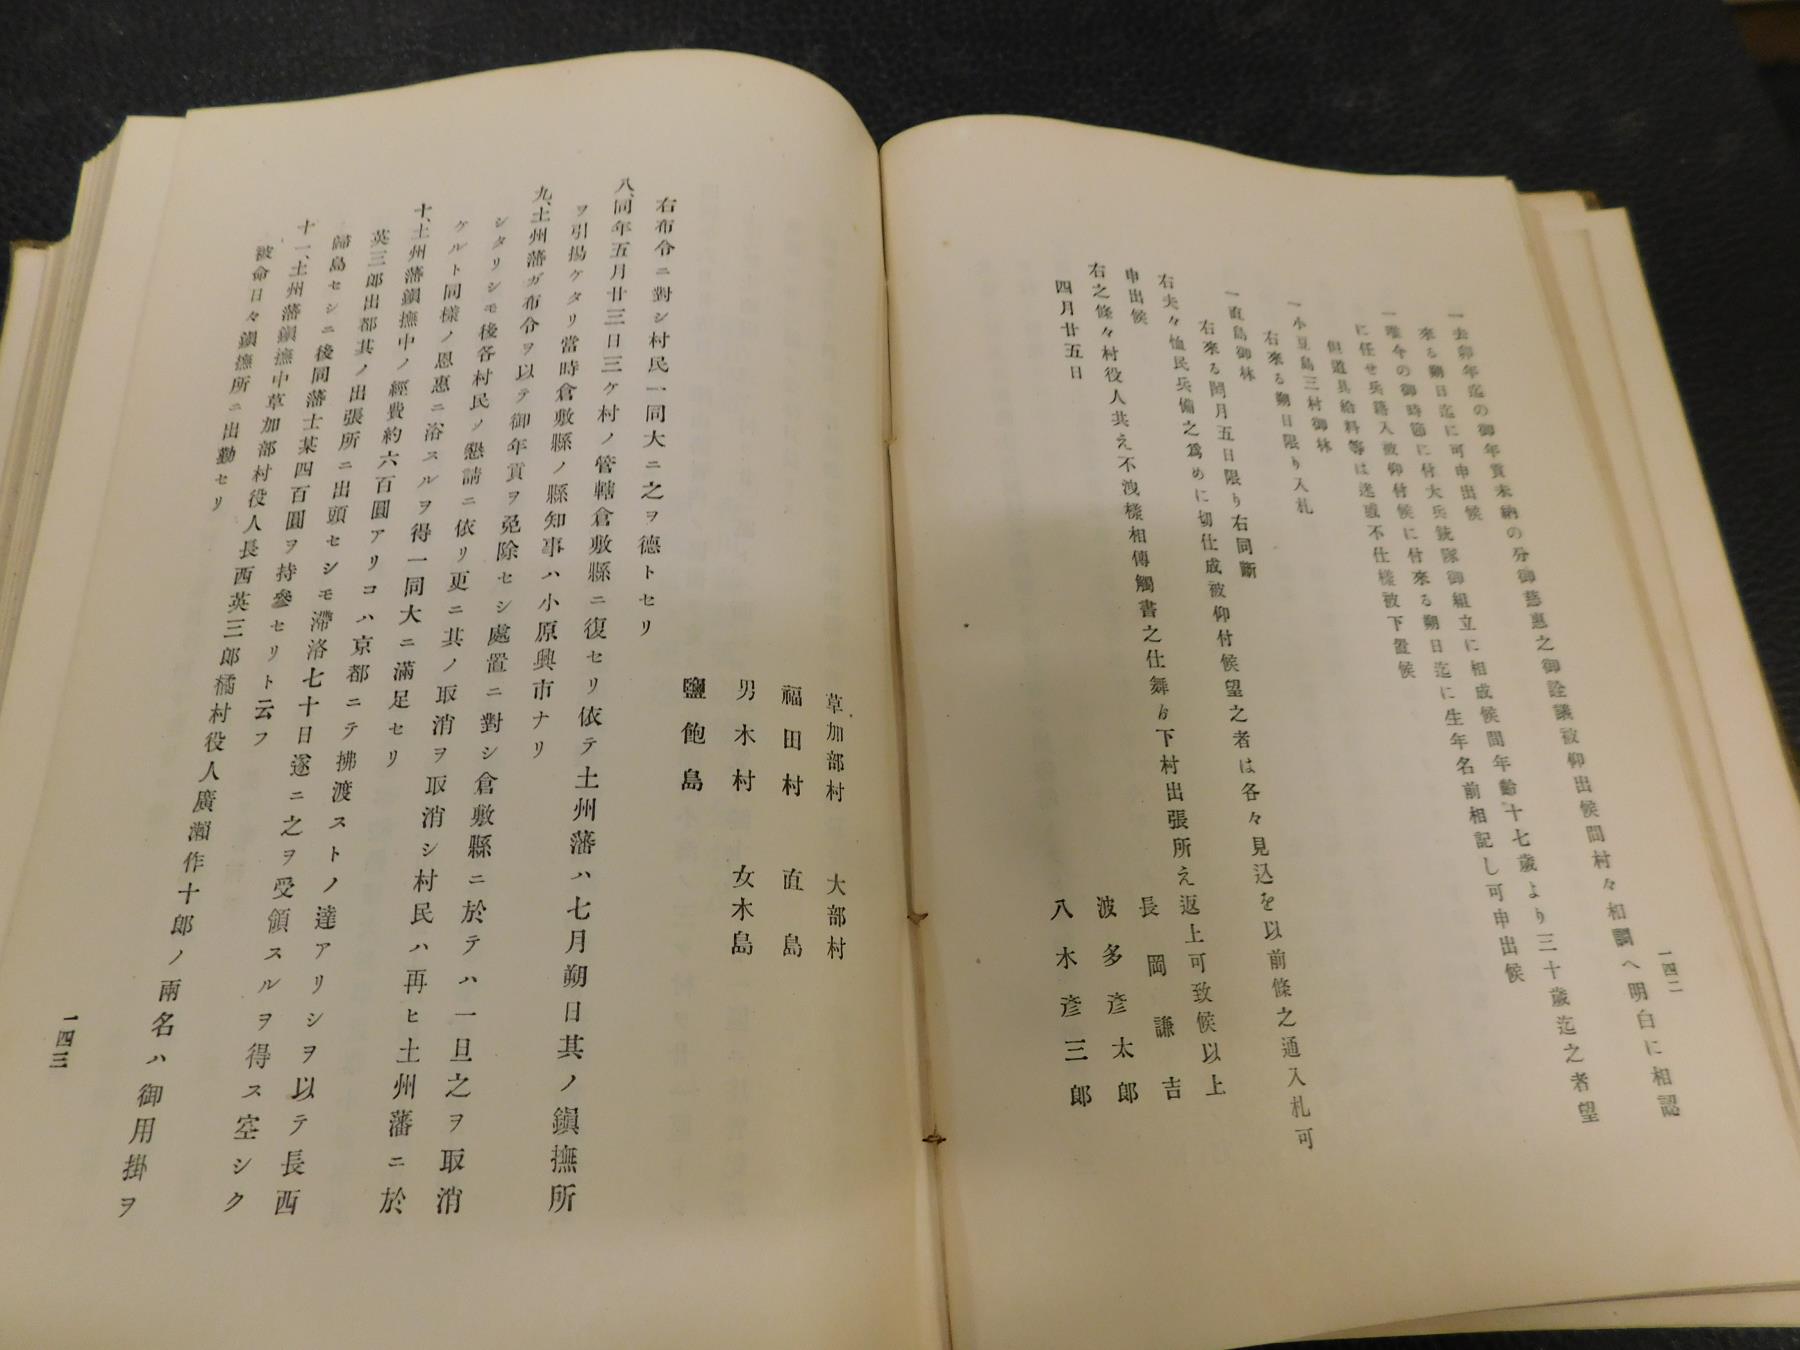 一四二
一去卯年迄の御年貢未納の分御慈惠之御詮議被仰出候間村々相調へ明白に相認
來る朔日迄に可申出候
一唯今の御時節に付大兵銃隊御組立に相成候間年齡十七歲より三十歲迄之者望
に任せ兵籍入被仰付候に付來る朔日迄に生年名前相記し可申出候
但道具給料等は迷惑不仕樣被下置候
一小豆島三村御林
右來る朔日限り入札
一直島御林
右來る閏月五日限り右同斷
右夫々恤民兵備之爲めに切仕成被仰付候望之者は各々見込を以前條之通入札可
申出候
右之條々村役人共え不洩樣相傳觸書之仕舞ゟ下村出張所え返上可致候以上
四月廿五日
長岡謙吉
波多彥太郎
八木彥三郎
草加部村 大部村
福田村 直島
男木村 女木島
鹽飽島
右布令ニ對シ村民一同大ニ之ヲ德トセリ
八、同年五月廿三日三ケ村ノ管轄倉敷縣ニ復セリ依テ土州藩ハ七月朔日其ノ鎭撫所
ヲ引揚ケタリ當時倉敷縣ノ縣知事ハ小原興市ナリ
九、土州藩ガ布令ヲ以テ御年貢ヲ免除セシ處置ニ對シ倉敷縣ニ於テハ一旦之ヲ取消
シタリシモ後各村民ノ懇請ニ依リ更ニ其ノ取消ヲ取消シ村民ハ再ヒ土州藩ニ於
ケルト同樣ノ恩惠ニ浴スルヲ得一同大ニ滿足セリ
十、土州藩鎭撫中ノ經費約六百圓アリコハ京都ニテ拂渡ストノ達アリシヲ以テ長西
英三郎出都其ノ出張所ニ出頭セシモ滯洛七十日遂ニ之ヲ受領スルヲ得ス空シク
歸島セシニ後同藩士某四百圓ヲ持參セリト云フ
十一、土州藩鎭撫中草加部村役人長西英三郎橘村役人廣瀨作十郎ノ兩名ハ御用掛ヲ
被命日々鎭撫所ニ出勤セリ
一四三